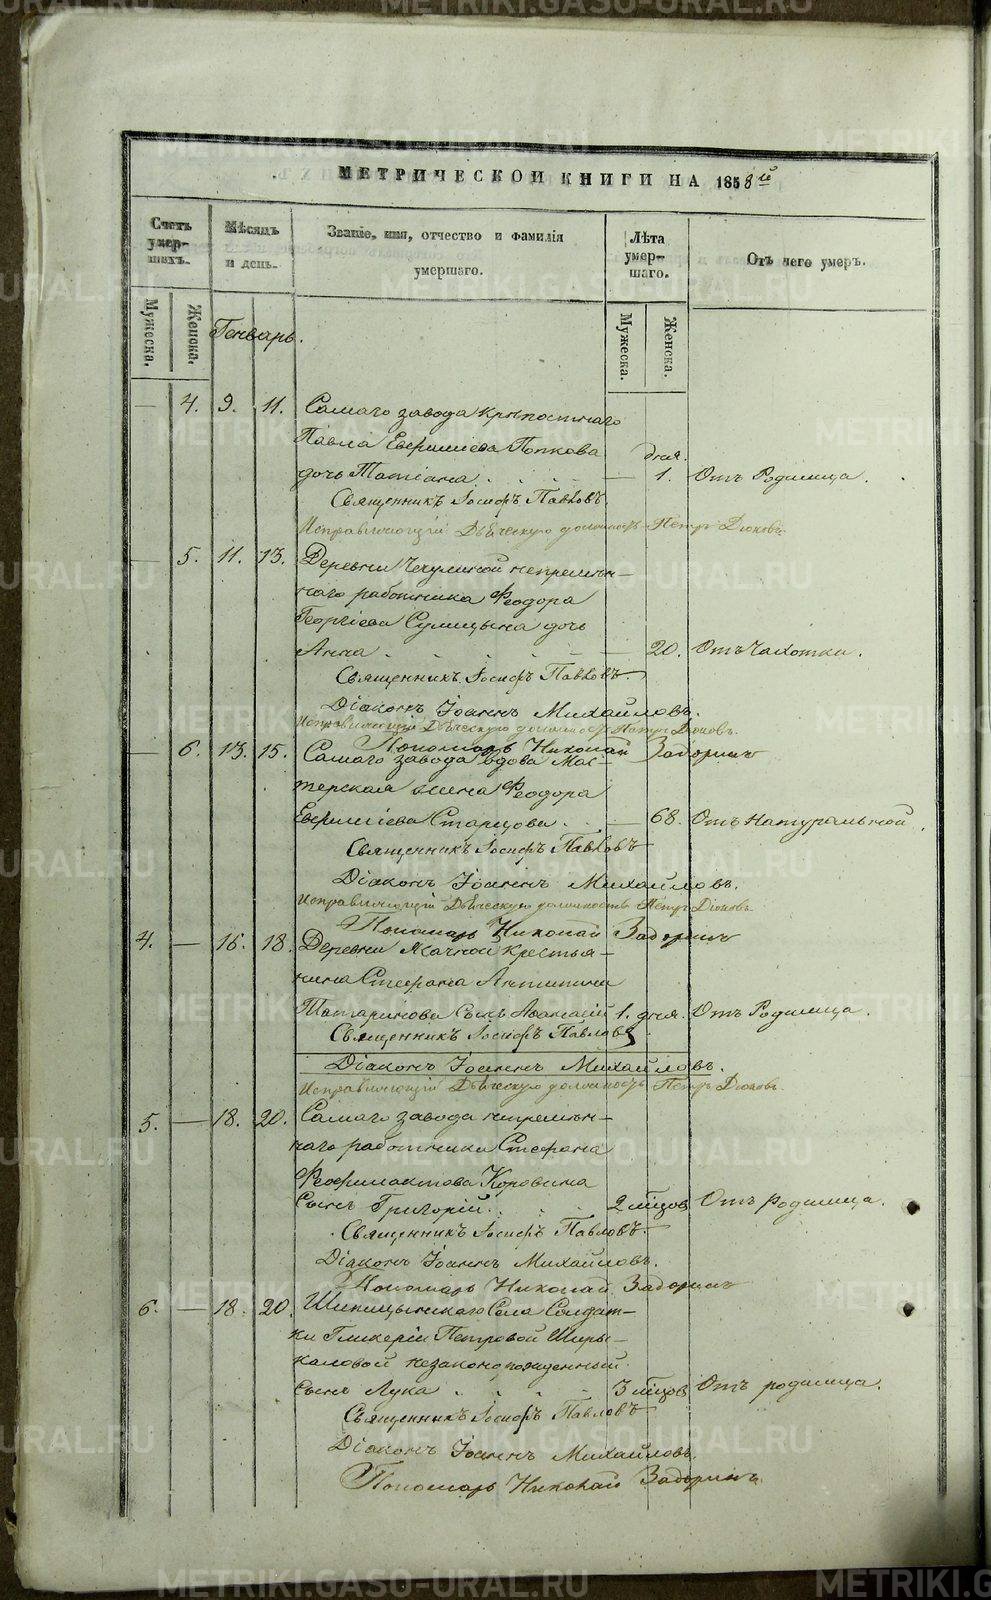 МЕТРИЧЕСКОЙ КНИГИ НА 1858й
Счетъ умер-шихъ.
Мѣсяцъ и день.
Званіе, имя, отчество и фамилія умершаго.
Лѣта умер-шаго.
Отъ чего умеръ.
Мужеска.
Женска.
Мужеска.
Женска.
Генварь.
— 4. 9. 11. Самаго завода крѣпостнаго
Павла Евфиміева Попкова дня.
дочь Татіана — 1. Отъ Родимца.
Священникъ Іосифъ Павловъ
Исправляющій Дьяческую должность Петръ Дюковъ
— 5. 11. 13. Деревни Чечулиной непремѣн-
наго работника Феодора
Георгіева Сулицына дочь
Анна — 20. Отъ Чахотки.
Священникъ Іосифъ Павловъ
Діаконъ Іоаннъ Михайловъ.
Исправляющій Дьяческую должность Петръ Дюковъ.
Пономарь Николай Задоринъ
— 6. 13. 15. Самаго завода вдова Мас-
терская жена Феодора
Евфиміева Старцова — 68. Отъ Натуральной.
Священникъ Іосифъ Павловъ
Діаконъ Іоаннъ Михайловъ.
Исправляющій Дьяческую должность Петръ Дюковъ
Пономарь Николай Задоринъ
4. — 16. 18. Деревни крестья-
нина Стефана Антипина
Татаринова Сынъ 1. дня. Отъ Родимца.
Священникъ Іосифъ Павловъ
Діаконъ Іоаннъ Михайловъ.
Исправляющій Дьяческую должность Петръ Дюковъ.
5. — 18. 20. Самаго завода непремѣн-
наго работника Стефана
Феофилактова Коровина
Сынъ Григорій. 2 мѣсцов Отъ Родимца.
Священникъ Іосифъ Павловъ.
Діаконъ Іоаннъ Михайловъ.
Пономарь Николай Задоринъ
6. — 18. 20. Шипицынскаго Села Солдат-
ки Гликеріи Петровой Ширы-
каловой незаконорожденный
Сынъ Лука 3 мѣсцов Отъ родимца.
Священникъ Іосифъ Павловъ
Діаконъ Іоаннъ Михайловъ.
Пономарь Николай Задоринъ
METRIKI.GASO-URAL.RU